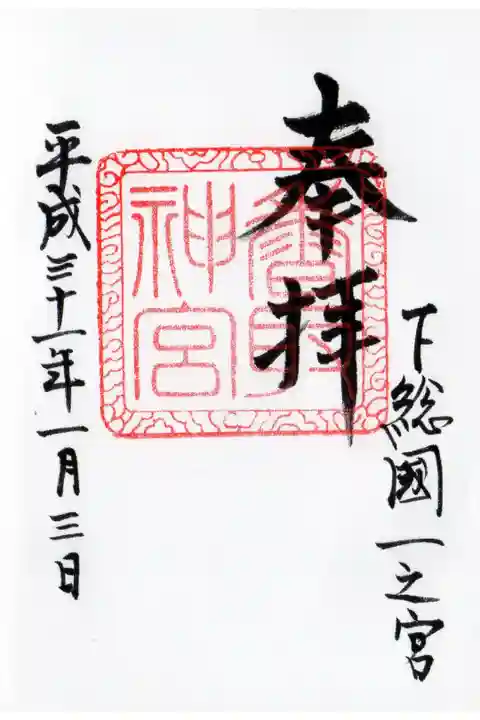 奉拝
下総國一之宮
香取神宮
平成三十一年一月三日